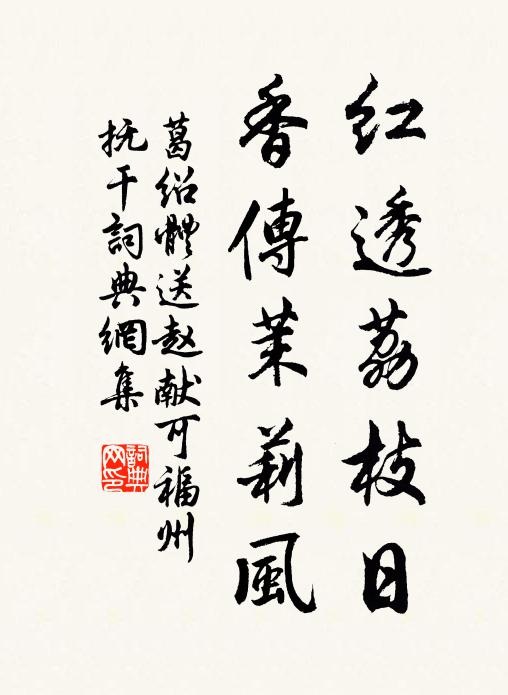 红透荔枝日
香傳茉莉風
葛绍體送赵献可福州
抚干詞典網集
詞典网印